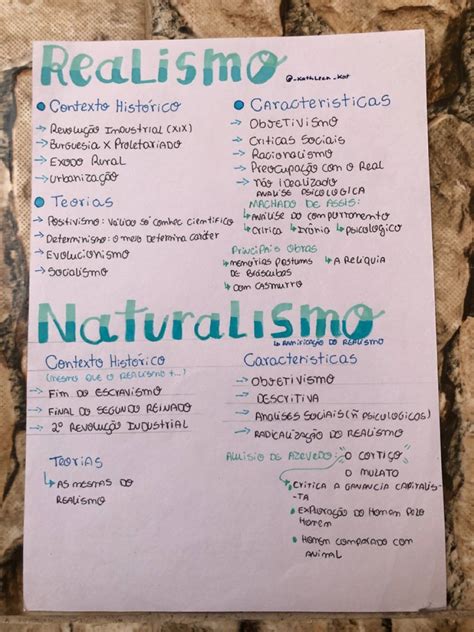 Realismo
@_Kathleen_Kat
Contexto Histórico
→ Revolução Industrial (XIX)
→ Burguesia X Proletariado
→ Exodo Rural
→ Urbanização
Teorias
→ Positivismo: Válido só conhec científico
→ Determinismo: o meio determina caráter
→ Evolucionismo
→ Socialismo
Caracteristicas
→ Objetivismo
→ Criticas Sociais
→ Racionalismo
→ Preocupação com o Real
→ Não Idealizado
Análise Psicologica
Machado de Assis:
↳ Análise do comportamento
↳ Crítica ↳ Irônia ↳ Psicologico
Principais Obras
↳ Memórias Postums
de Bráscubas
↳ A Reliquia
↳ Dom Casmurro
Naturalismo
↳ Ramificação do Realismo
Contexto Histórico
(Mesmo que o Realismo +...)
→ Fim do Escravismo
→ Final do Segundo Reinado
→ 2º Revolução Industrial
Teorias
↳ As mesmas do
Realismo
Caracteristicas
→ Objetivismo
→ Descritiva
→ Análises Sociais (ñ psicológicos)
→ Radicalização do Realismo
Aluisio de Azevedo: "O Cortiço"
O Mulato
• Critica a ganancia capitalis-
ta
• Exploração do Homem pelo
Homem
• Homem comparado com
animal